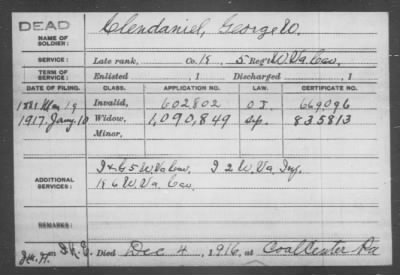 DEAD
NAME OF SOLDIER: Clendaniel, George W.
SERVICE: Late rank, Co. , 5 Reg't W. Va. Cav.
TERM OF SERVICE: Enlisted , 1 Discharged , 1
DATE OF FILING. CLASS. APPLICATION NO. LAW. CERTIFICATE NO.
1887 Invalid, 602802 O.J. 669,096
1917. Jany. 10 Widow, 1,090,849 835813
Minor,
ADDITIONAL SERVICES: I & G 5 W. Va. Cav. I 2 W. Va. Inf.
6 W. Va. Cav.
REMARKS:
Died Dec 4, 1916, at Coal Center Pa